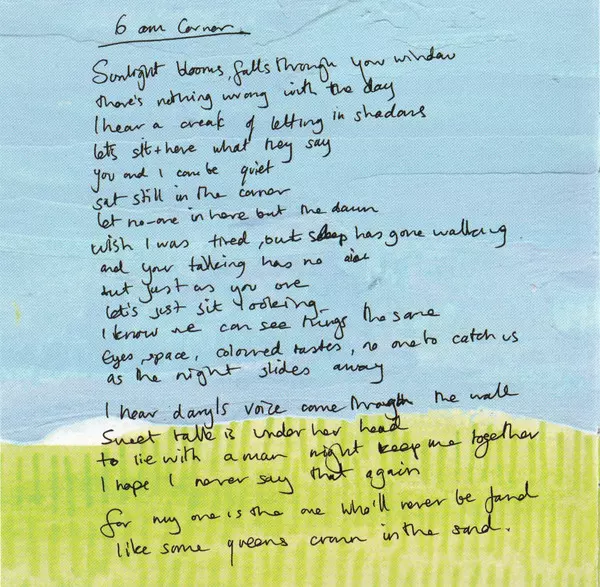 6 am Corner.
Sunlight blooms, falls through your window
there's nothing wrong with the day
I hear a creak of letting in shadows
lets sit + here what they say
you and I can be quiet
sat still in the corner
let no-one in here but the dawn
wish I was tired, but sleep has gone walking
and your talking has no
but just as you are
let's just sit looking
I know we can see things the same
Eyes, space, coloured tastes, no one to catch us
as the night slides away
I hear daryls voice come through the wall
Sweet talk is under her head
to lie with a man might keep me together
I hope I never say that again
for my one is the one who'll never be found
like some queens crown in the sand.